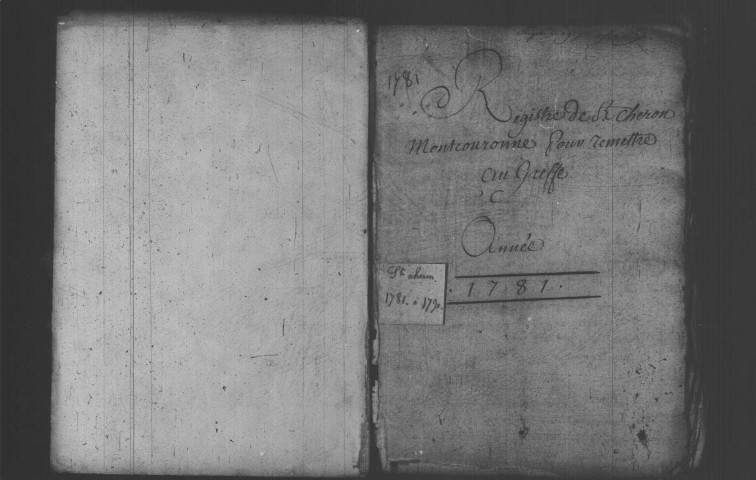 1781
Registre de St Cheron
Montcouronne pour remettre
au Greffe
Année
1781.
St cheron
1781. a 1790.